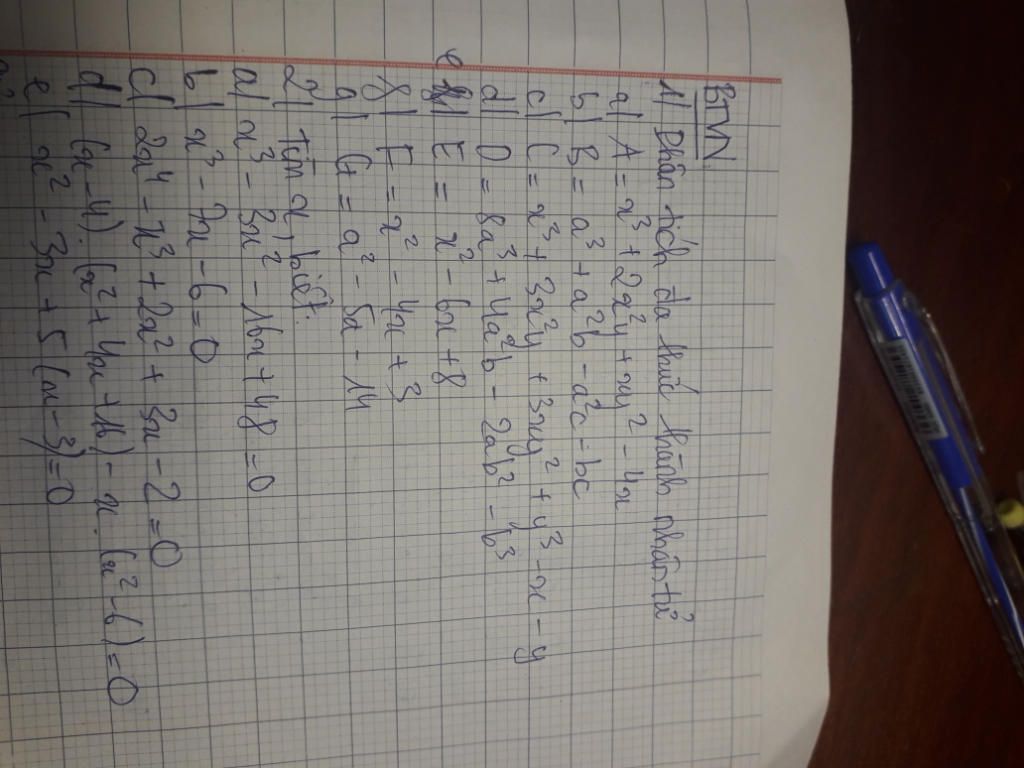 BTVN
1) Phân tích đa thức thành nhân tử
a) A = x³ + 2x²y + xy² - 4x
b) B = a³ + a²b - a²c - bc
c) C = x³ + 3x²y + 3xy² + y³ - x - y
d) D = 8a³ + 4a²b - 2ab² - b³
e) E = x² - 6x + 8
f) F = x² - 4x + 3
g) G = a² - 5a - 14
2) Tìm x, biết:
a) x³ - 3x² - 16x + 48 = 0
b) x³ - 7x - 6 = 0
c) 2x⁴ - x³ + 2x² + 3x - 2 = 0
d) (x - 4). (x² + 4x + 16) - x. (x² - 6) = 0
e) x² - 3x + 5(x - 3) = 0